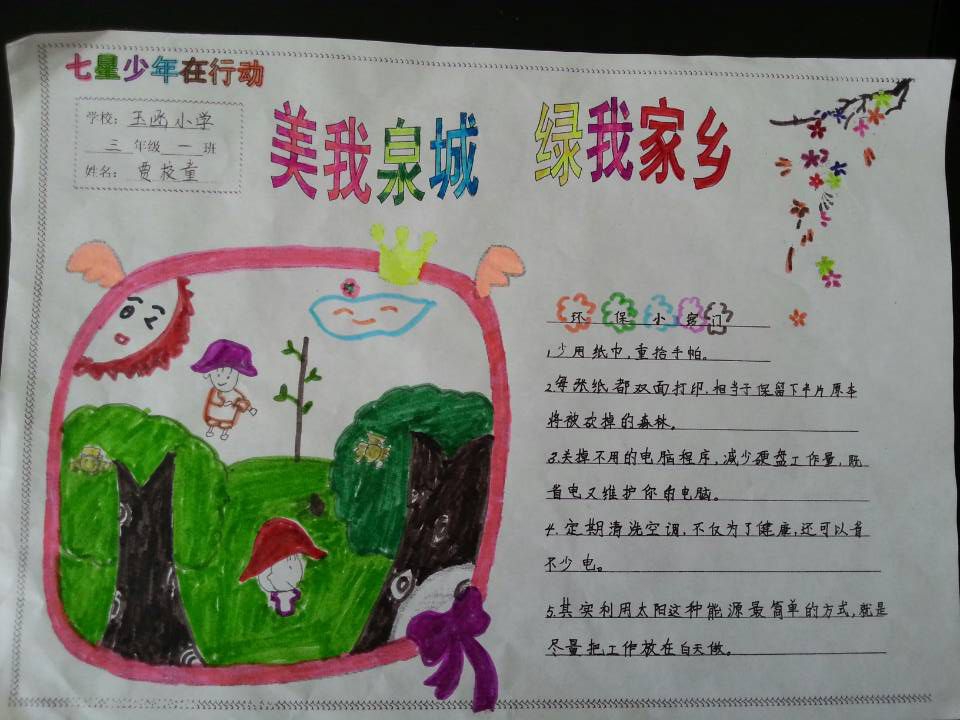 七星少年在行动
学校: 玉函小学
三年级一班
姓名: 贾枝童
美我泉城 绿我家乡
环保小窍门
1.少用纸巾,重拾手帕。
2.每张纸都双面打印,相当于保留下半片原本
将被砍掉的森林。
3.关掉不用的电脑程序,减少硬盘工作量,既
省电又维护你的电脑。
4.定期清洗空调,不仅为了健康,还可以省
不少电。
5.其实利用太阳这种能源最简单的方式,就是
尽量把工作放在白天做。